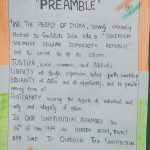 "PREAMBLE"
"WE THE PEOPLE OF INDIA, having solemnly
Resolved to Constitute India into a "SOVEREIGN
SOCIALIST SECULAR DEMOCRATIC REPUBLIC"
and to secure to all its citizens
JUSTICE, social, economic and Political
LIBERTY of thought, expression, belief, faith, worship
EQUALITY of status and of opportunity, and to promote
among them all
FRATERNITY assuring the dignity of individual and
unity and integrity of
IN OUR CONSTITUENT ASSEMBLY this
26th of Nov 1949 do HEREBY ADOPT, ENACT
AND GIVE TO OURSELVES THIS CONSTITUTION